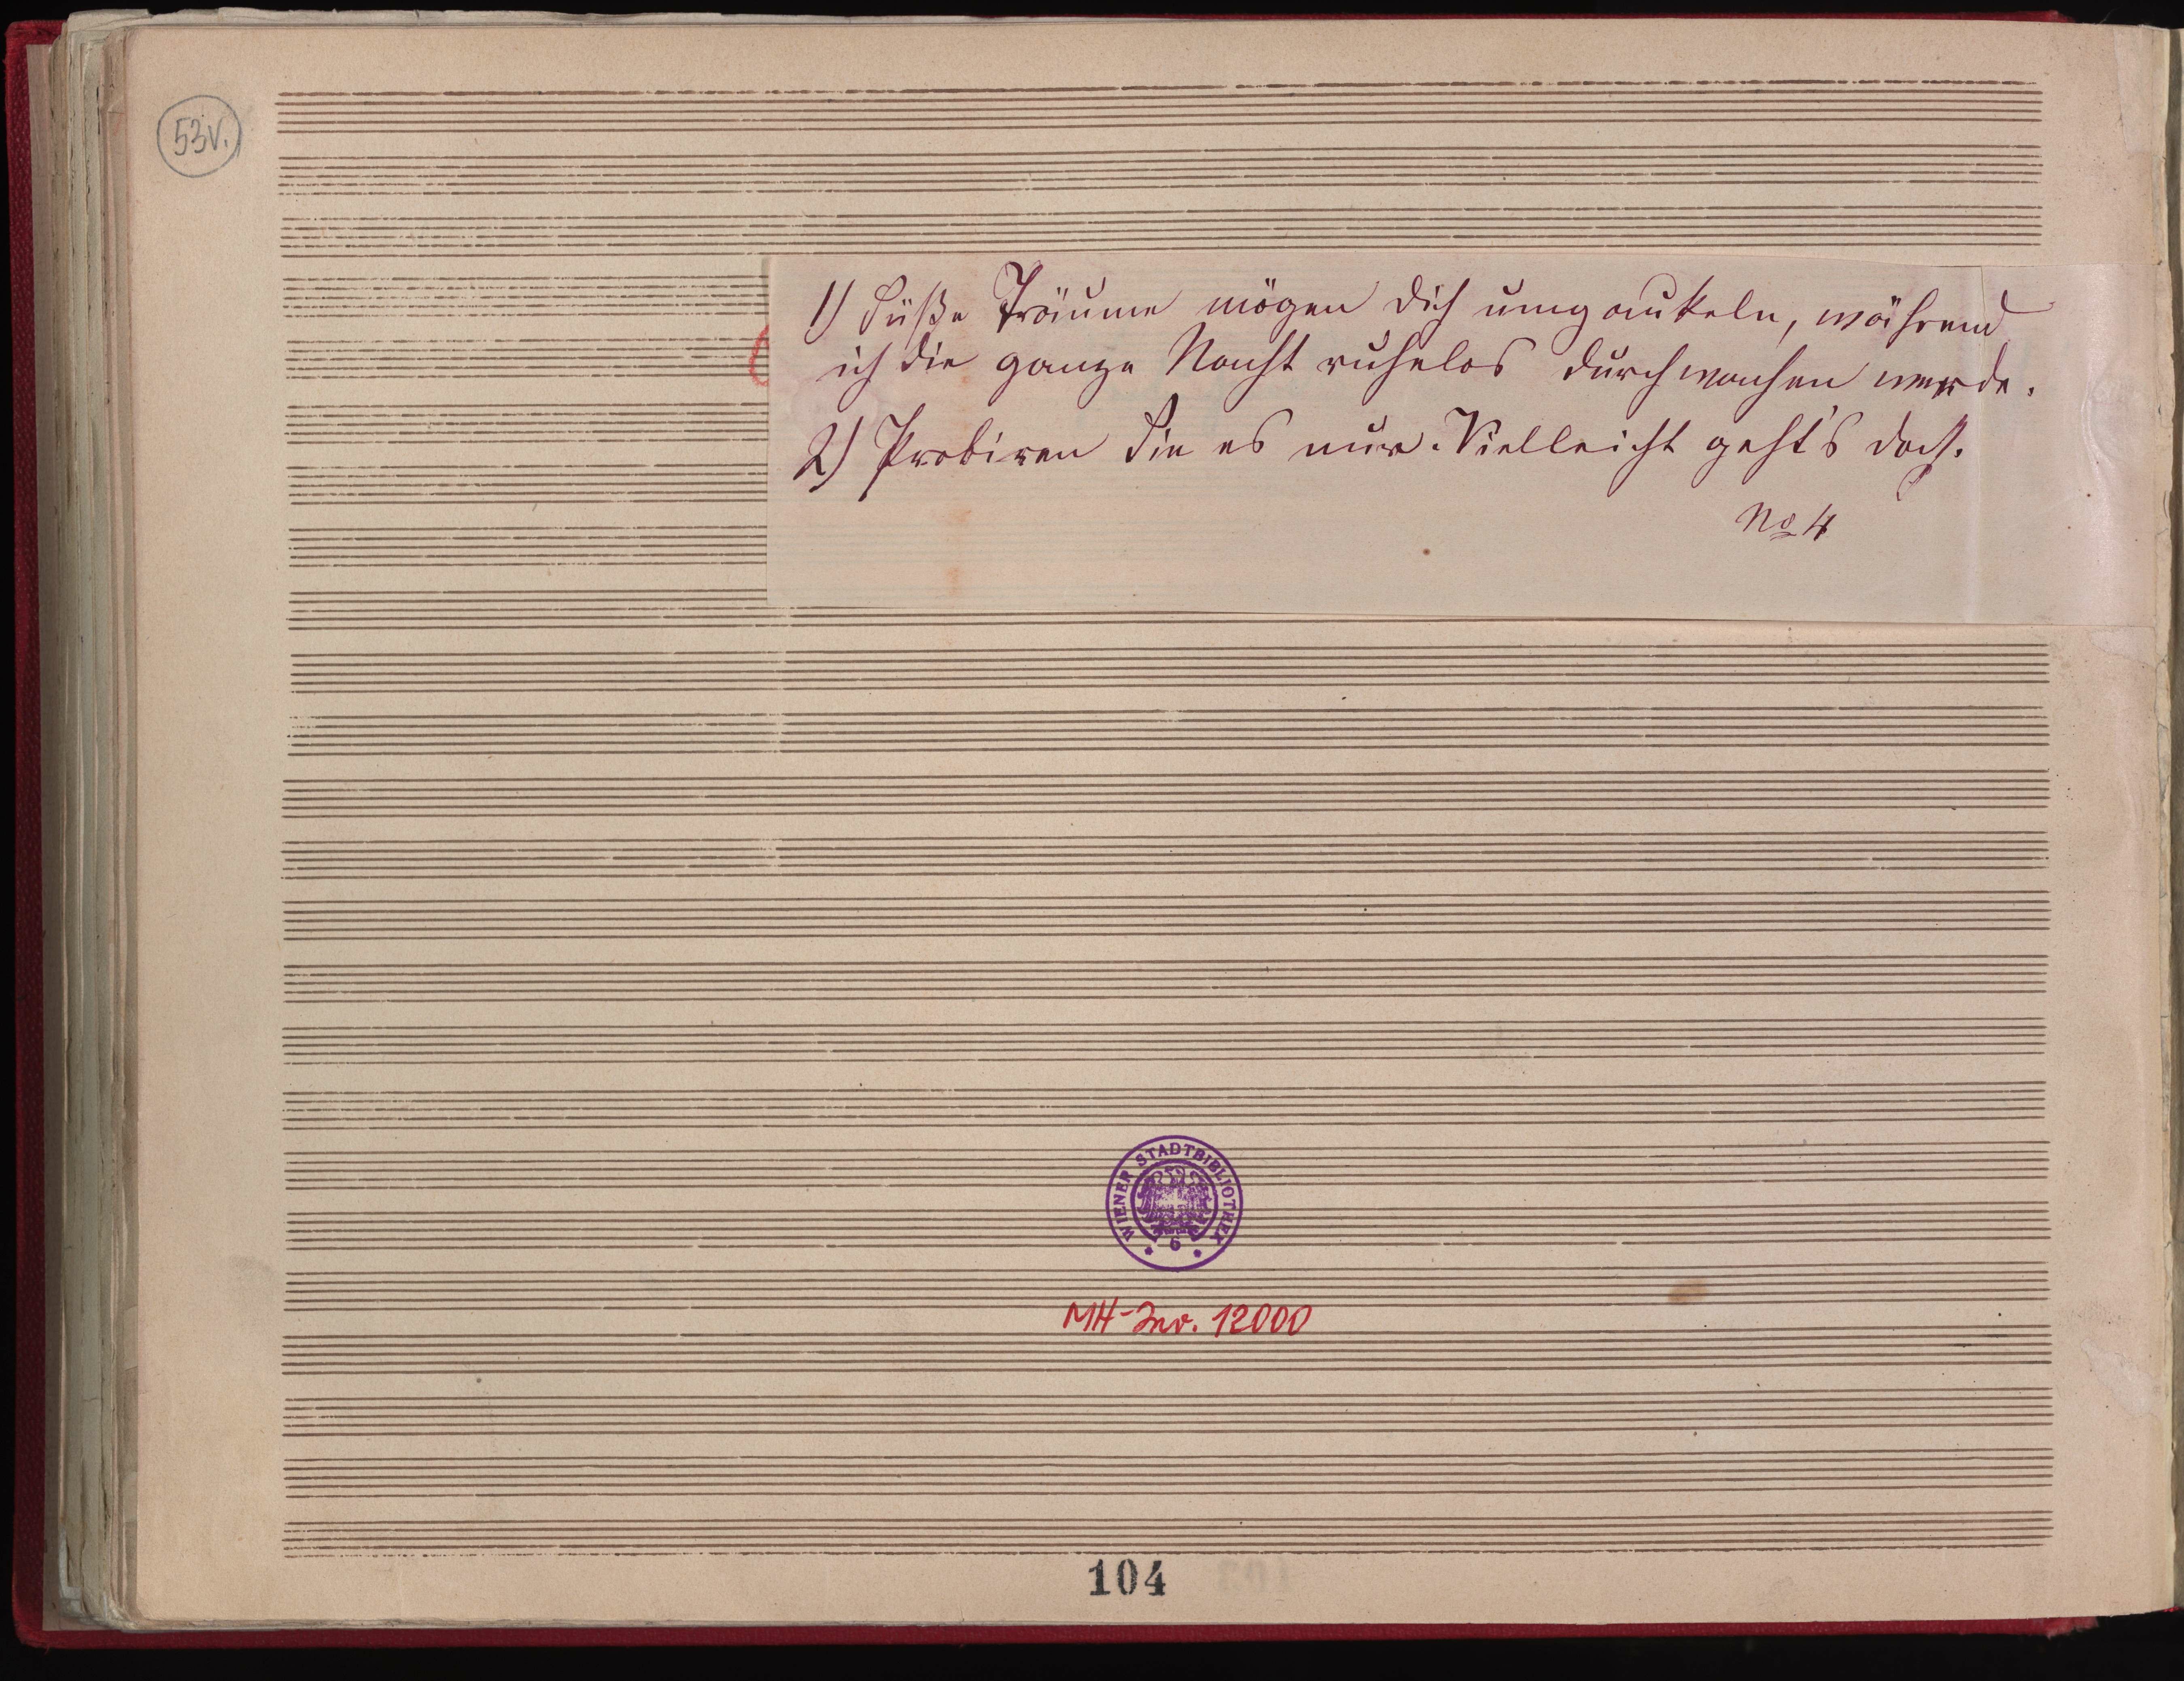 53v.
1) Süße Träume mögen dich umgaukeln, während
ich die ganze Nacht ruhelos durchwachen werde.
2) Probiren Sie es nur. Vielleicht geht's doch.
No 4
WIENER STADTBIBLIOTHEK
6
MH-Inv. 12000
104